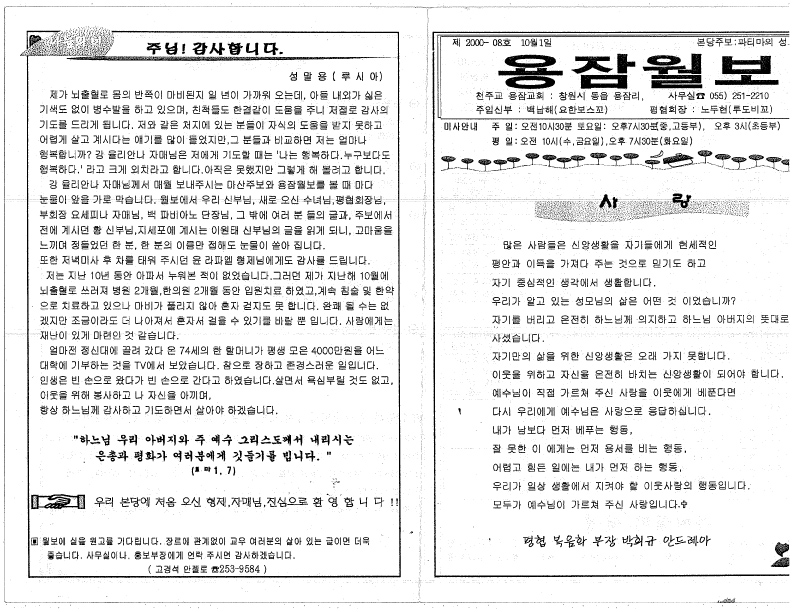 주님! 감사합니다.
성 말 용 ( 루 시 아)
제가 뇌출혈로 몸의 반쪽이 마비된지 일 년이 가까워 오는데, 아들 내외가 싫은
기색도 없이 병수발을 하고 있으며, 친척들도 한결같이 도움을 주니 저절로 감사의
기도를 드리게 됩니다. 저와 같은 처지에 있는 분들이 자식의 도움을 받지 못하고
어렵게 살고 계시다는 얘기를 많이 들었지만,그 분들과 비교하면 저는 얼마나
행복합니까? 강 율리안나 자매님은 저에게 기도할 때는 '나는 행복하다.누구보다도
행복하다.' 라고 크게 외치라고 합니다.아직은 못했지만 그렇게 해 볼려고 합니다.
강 율리안나 자매님께서 매월 보내주시는 마산주보와 용잠월보를 볼 때 마다
눈물이 앞을 가로 막습니다. 월보에서 우리 신부님, 새로 오신 수녀님,평협회장님,
부회장 요세피나 자매님, 백 파비아노 단장님, 그 밖에 여러 분 들의 글과, 주보에서
전에 계시던 황 신부님,지세포에 계시는 이원태 신부님의 글을 읽게 되니, 고마움을
느끼며 정들었던 한 분, 한 분의 이름만 접해도 눈물이 쏟아 집니다.
또한 저녁미사 후 차를 태워 주시던 윤 라파엘 형제님에게도 감사를 드립니다.
저는 지난 10년 동안 아파서 누워본 적이 없었습니다.그러던 제가 지난해 10월에
뇌출혈로 쓰러져 병원 2개월,한의원 2개월 동안 입원치료 하였고,계속 침술 및 한약
으로 치료하고 있으나 마비가 풀리지 않아 혼자 걷지도 못 합니다. 완쾌 될 수는 없
겠지만 조금이라도 더 나아져서 혼자서 걸을 수 있기를 바랄 뿐 입니다. 사람에게는
재난이 있게 마련인 것 같습니다.
얼마전 정신대에 끌려 갔다 온 74세의 한 할머니가 평생 모은 4000만원을 어느
대학에 기부하는 것을 TV에서 보았습니다. 참으로 장하고 존경스러운 일입니다.
인생은 빈 손으로 왔다가 빈 손으로 간다고 하였습니다.살면서 욕심부릴 것도 없고,
이웃을 위해 봉사하고 나 자신을 아끼며,
항상 하느님께 감사하고 기도하면서 살아야 하겠습니다.
"하느님 우리 아버지와 주 예수 그리스도께서 내리시는
은총과 평화가 여러분에게 깃들기를 빕니다. "
(로 마 1, 7)
우리 본당에 처음 오신 형제,자매님,진심으로 환 영 합 니 다 !!
▣ 월보에 실을 원고를 기다립니다. 장르에 관계없이 교우 여러분의 살아 있는 글이면 더욱
좋습니다. 사무실이나. 홍보부장에게 연락 주시면 감사하겠습니다.
( 고경석 안젤로 ☎253-9584 )
제 2000- 08호 10월1일 본당주보:파티마의 성.
용잠월보
천주교 용잠교회 : 창원시 동읍 용잠리, 사무실☎ 055) 251-2210
주임신부 : 백남해(요한보스꼬) 평협회장 : 노두현(루도비꼬)
미사안내 주 일: 오전10시30분 토요일: 오후7시30분(중,고등부), 오후 3시(초등부)
평 일: 오전 10시(수,금요일),오후 7시30분(화요일)
사 랑
많은 사람들은 신앙생활을 자기들에게 현세적인
평안과 이득을 가져다 주는 것으로 믿기도 하고
자기 중심적인 생각에서 생활합니다.
우리가 알고 있는 성모님의 삶은 어떤 것 이었습니까?
자기를 버리고 온전히 하느님께 의지하고 하느님 아버지의 뜻대로
사셨습니다.
자기만의 삶을 위한 신앙생활은 오래 가지 못합니다.
이웃을 위하고 자신을 온전히 바치는 신앙생활이 되어야 합니다.
예수님이 직접 가르쳐 주신 사랑을 이웃에게 베푼다면
다시 우리에게 예수님은 사랑으로 응답하십니다.
내가 남보다 먼저 베푸는 행동,
잘 못한 이 에게는 먼저 용서를 비는 행동,
어렵고 힘든 일에는 내가 먼저 하는 행동,
우리가 일상 생활에서 지켜야 할 이웃사랑의 행동입니다.
모두가 예수님이 가르쳐 주신 사랑입니다.✞
평협 복음화 부장 박희규 안드레아